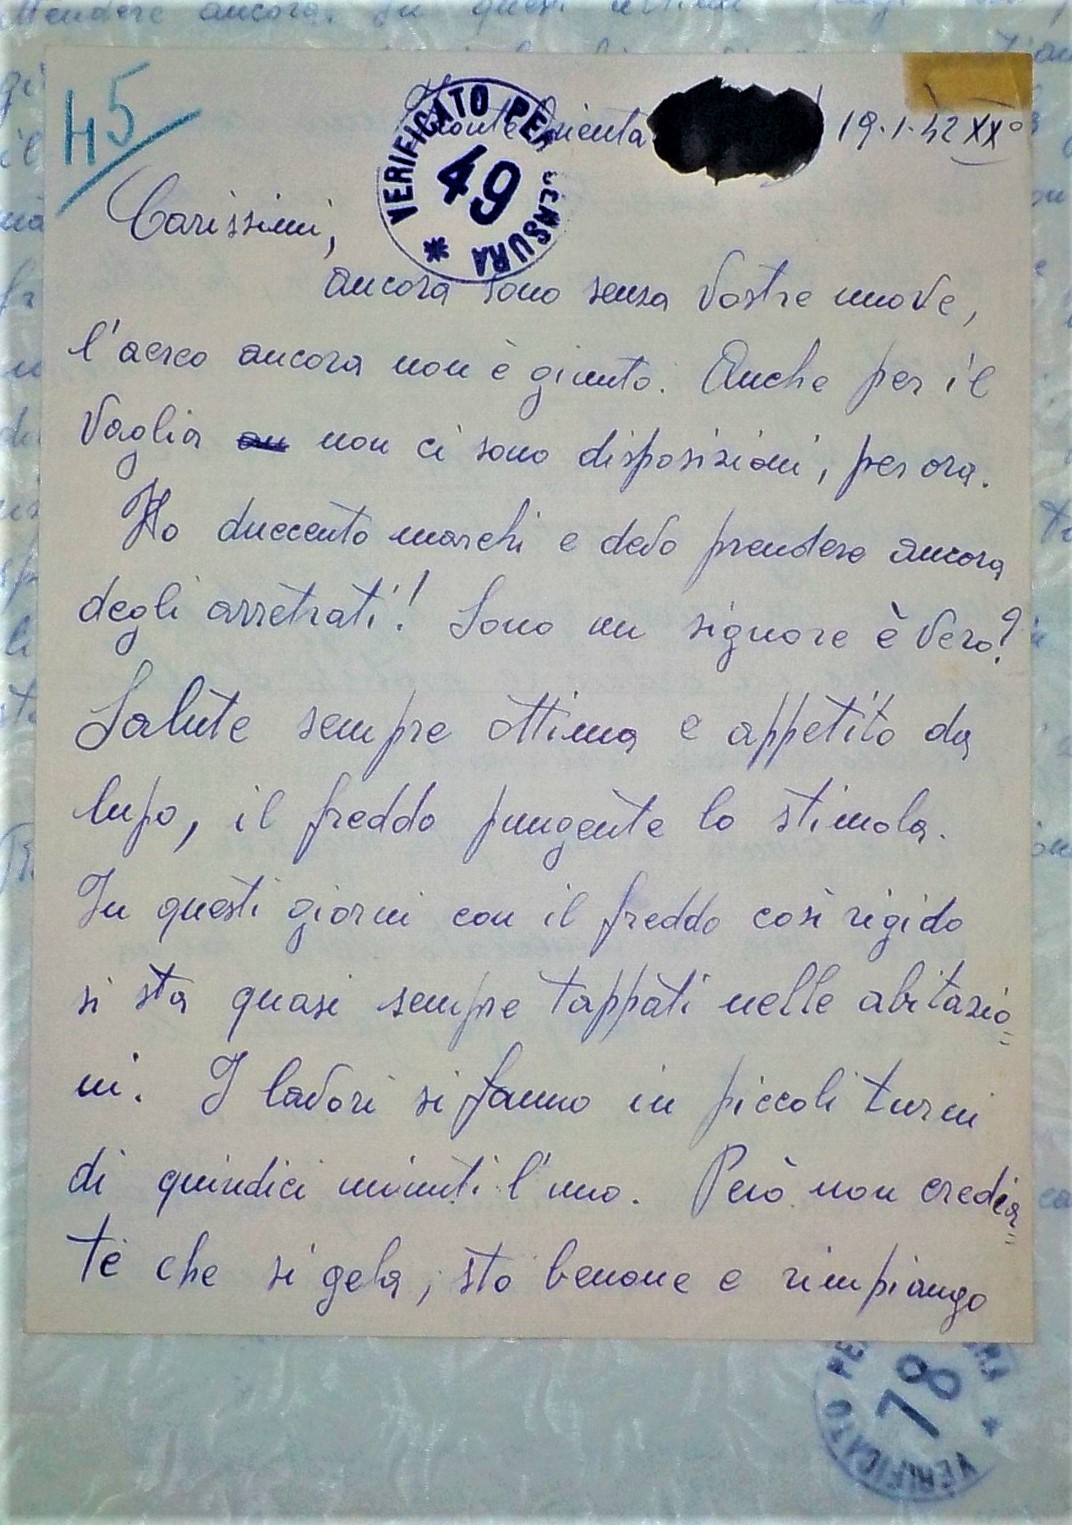 45
VERIFICATO PER CENSURA
49
Fronte Orienta 19.1.42 XX°
Carissimi,
ancora sono senza vostre nuove,
l'aereo ancora non è giunto. Anche per il
vaglia an non ci sono disposizioni, per ora.
Ho duecento marchi e devo prendere ancora
degli arretrati! Sono un signore è vero?
Salute sempre ottima e appetito da
lupo, il freddo pungente lo stimola.
In questi giorni con il freddo così rigido
si sta quasi sempre tappati nelle abitazio=
ni. I lavori si fanno in piccoli turni
di quindici minuti l'uno. Però non credia=
te che si gela, sto benone e rimpiango
VERIFICATO PE
78